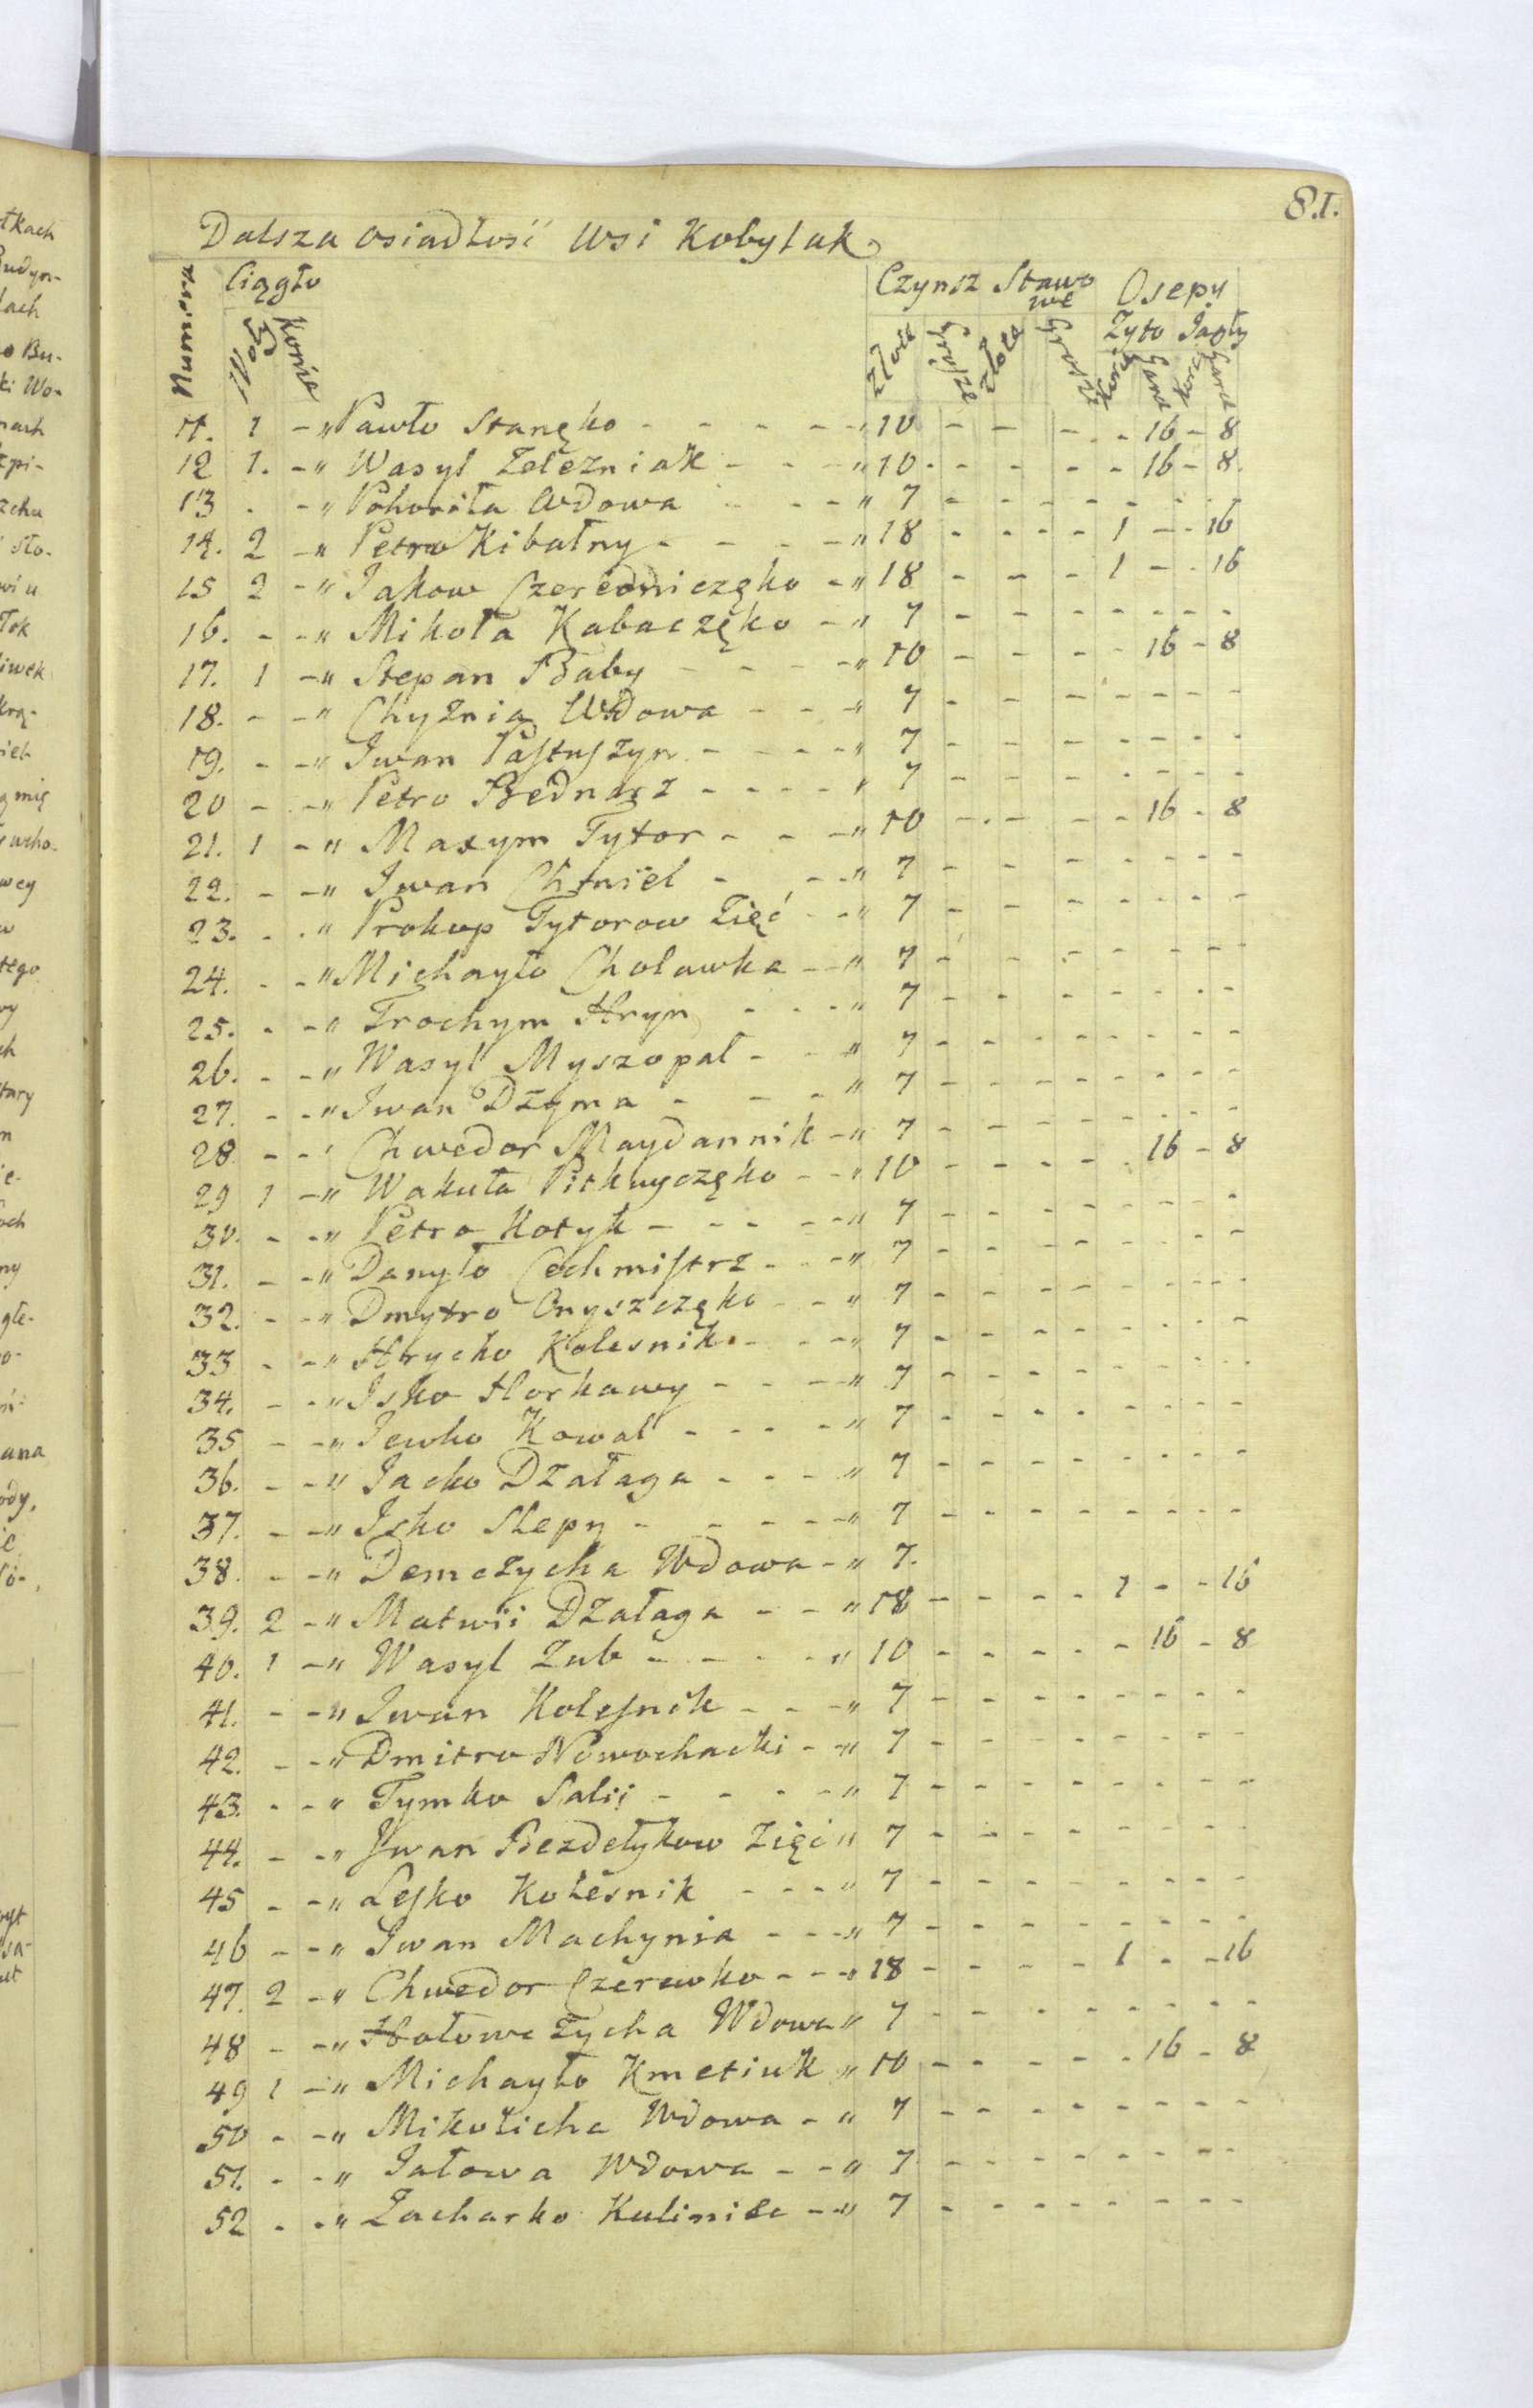 81.
Dalsza osiadłość Wsi Kobylak
Numera Ciągło Czynsz Stawowe Osepy
Woły Konie Złote Grosze Złote Grosze Zyto Jagły
Garc Garc
11. 1 - " Pawło Stanęko - - - - " 10 - - - - - 16 - 8
12 1. - " Wasyl Zelezniak - - - " 10 - - - - - 16 - 8.
13 . - " Pohoriła Wdowa - - - " 7 - - - - - - - -
14. 2 - " Petro Kibałny - - - - " 18 - - - - 1 - - 16
15 2 - " Jakow Czeredniczęko - " 18 - - - - 1 - - 16
16. - - " Mikoła Kabaczęko - " 7 - - - - - - - -
17. 1 - " Stepan Baby - - - - " 10 - - - - - 16 - 8
18. - - " Chyżnia Wdowa - - - " 7 - - - - - - - -
19. - - " Iwan Pastuszyn - - - - " 7 - - - - - - - -
20 - - " Petro Bednarz - - - - " 7 - - - - - - - -
21. 1 - " Maxym Tytor - - - " 10 - - - - - 16 - 8
22. - - " Iwan Chmiel - - - " 7 - - - - - - - -
23. - - " Prokop Tytorow Zięć - " 7 - - - - - - - -
24. - - " Michayło Cholawka - - " 7 - - - - - - - -
25. - - " Trochym Hryn - - - " 7 - - - - - - - -
26. - - " Wasyl Myszopal - - " 7 - - - - - - - -
27. - - " Iwan Dzyma - - - " 7 - - - - - - - -
28 - - " Chwedor Maydannik - " 7 - - - - - - - -
29 1 - " Wakuła Pitkuyczęko - - " 10 - - - - - 16 - 8
30. - - " Petro Kotyk - - - - - " 7 - - - - - - - -
31. - - " Danyło Cechmistrz - - - " 7 - - - - - - - -
32. - - " Dmytro Onyszczęko - - " 7 - - - - - - - -
33 - - " Hrycko Kolesnik - - - " 7 - - - - - - - -
34. - - " Isko Horkawy - - - - " 7 - - - - - - - -
35 - - " Iewko Kowal - - - - " 7 - - - - - - - -
36. - - " Jacko Dzałaga - - - " 7 - - - - - - - -
37. - - " Isko Slepy - - - - - " 7 - - - - - - - -
38. - - " Demczycha Wdowa - " 7.
39. 2 - " Matwii Dzałaga - - " 18 - - - - 1 - - 16
40. 1 - " Wasyl Zub - - - - " 10 - - - - - 16 - 8
41. - - " Iwan Kolesnik - - - " 7 - - - - - - - -
42. - - " Dmitro Nowochacki - " 7 - - - - - - - -
43. - - " Tymko Salii - - - - " 7 - - - - - - - -
44. - - " Iwan Bezdetykow Zięć " 7 - - - - - - - -
45 - - " Lesko Kolesnik - - - " 7 - - - - - - - -
46 - - " Iwan Machynia - - - " 7 - - - - - - - -
47. 2 - " Chwedor Czerewko - - - " 18 - - - - 1 - - 16
48 - - " Hołowczycha Wdowa " 7 - - - - - - - -
49 1 - " Michayło Kmetiuk " 10 - - - - - 16 - 8
50 - - " Mikolicha Wdowa - " 7 - - - - - - - -
51. - - " Jałowa Wdowa - - " 7 - - - - - - - -
52 - - " Zacharko Kulinicz - " 7 - - - - - - - -